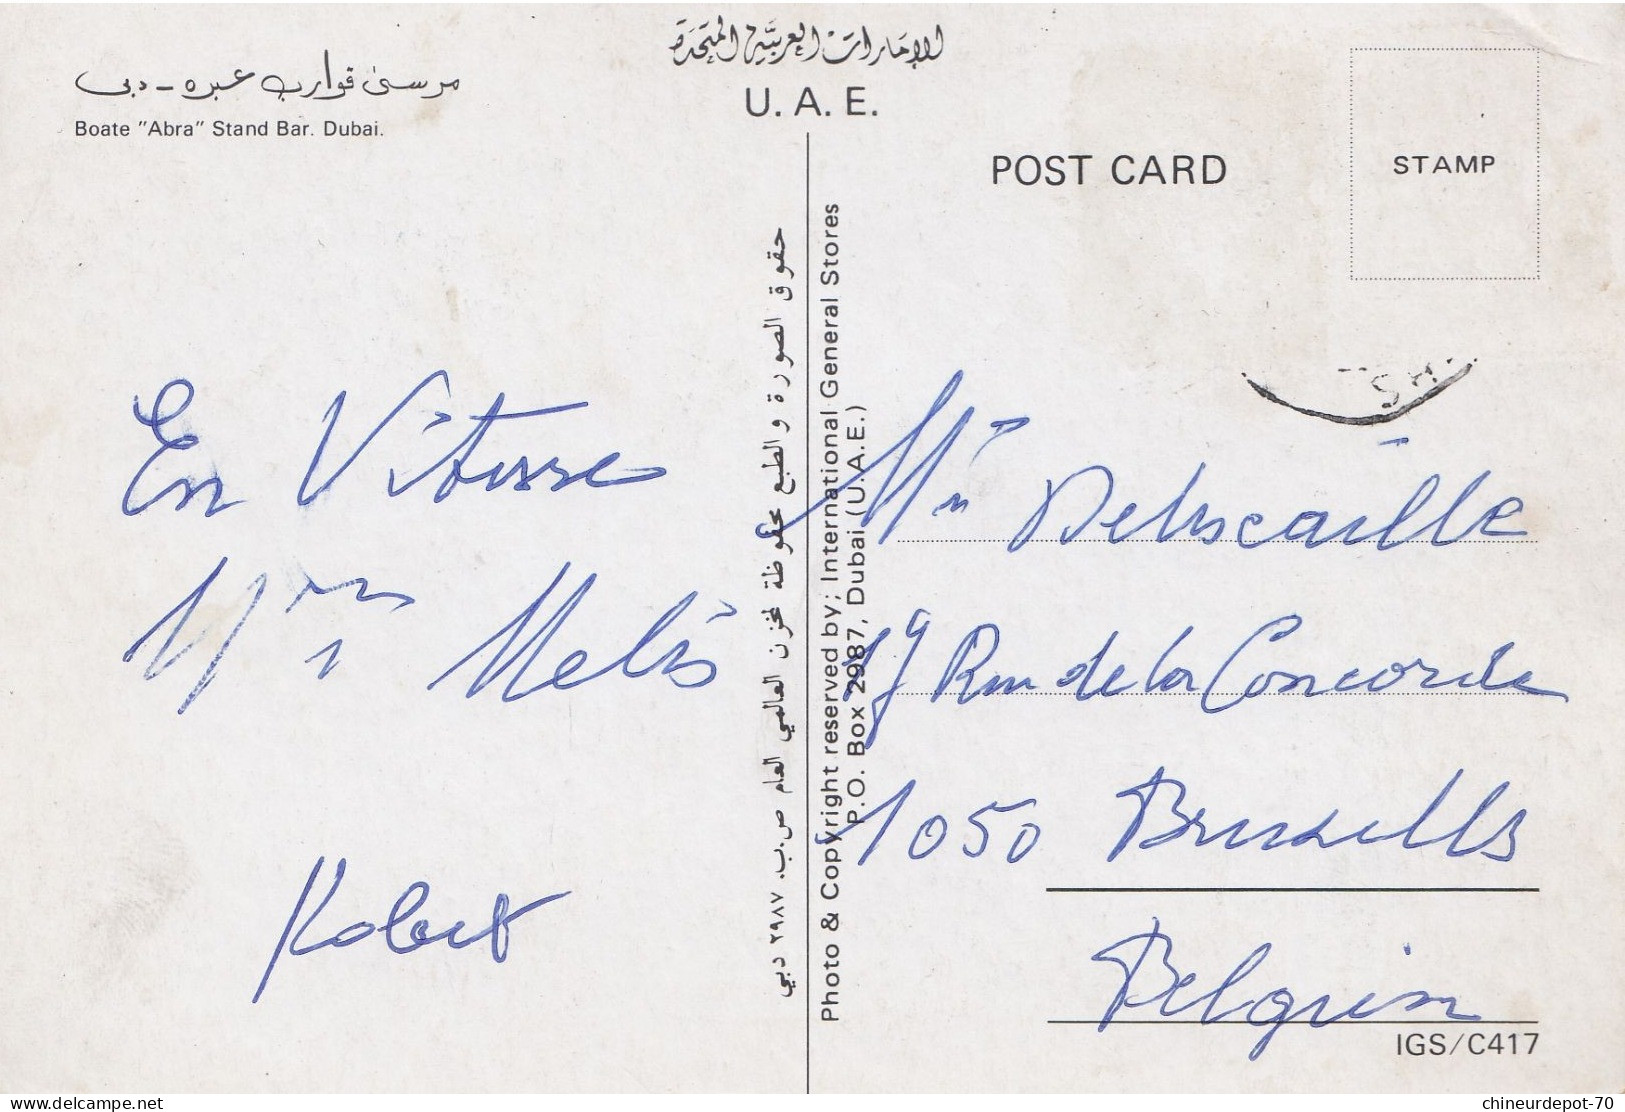 الإمارات العربية المتحدة
U. A. E.
مرسى قوارب عبره - دبى
Boate "Abra" Stand Bar. Dubai.
POST CARD
STAMP
حقوق الصورة والطبع محفوظة لمخزن العالمي العام ص.ب. ٢٩٨٧ دبي
Photo & Copyright reserved by; International General Stores
P.O. Box 2987, Dubai (U.A.E.)
En Vitesse
Robert
19 Rue de la Concorde
1050 Bruxelles
Belgium
IGS/C417
delcampe.net
chineurdepot-70